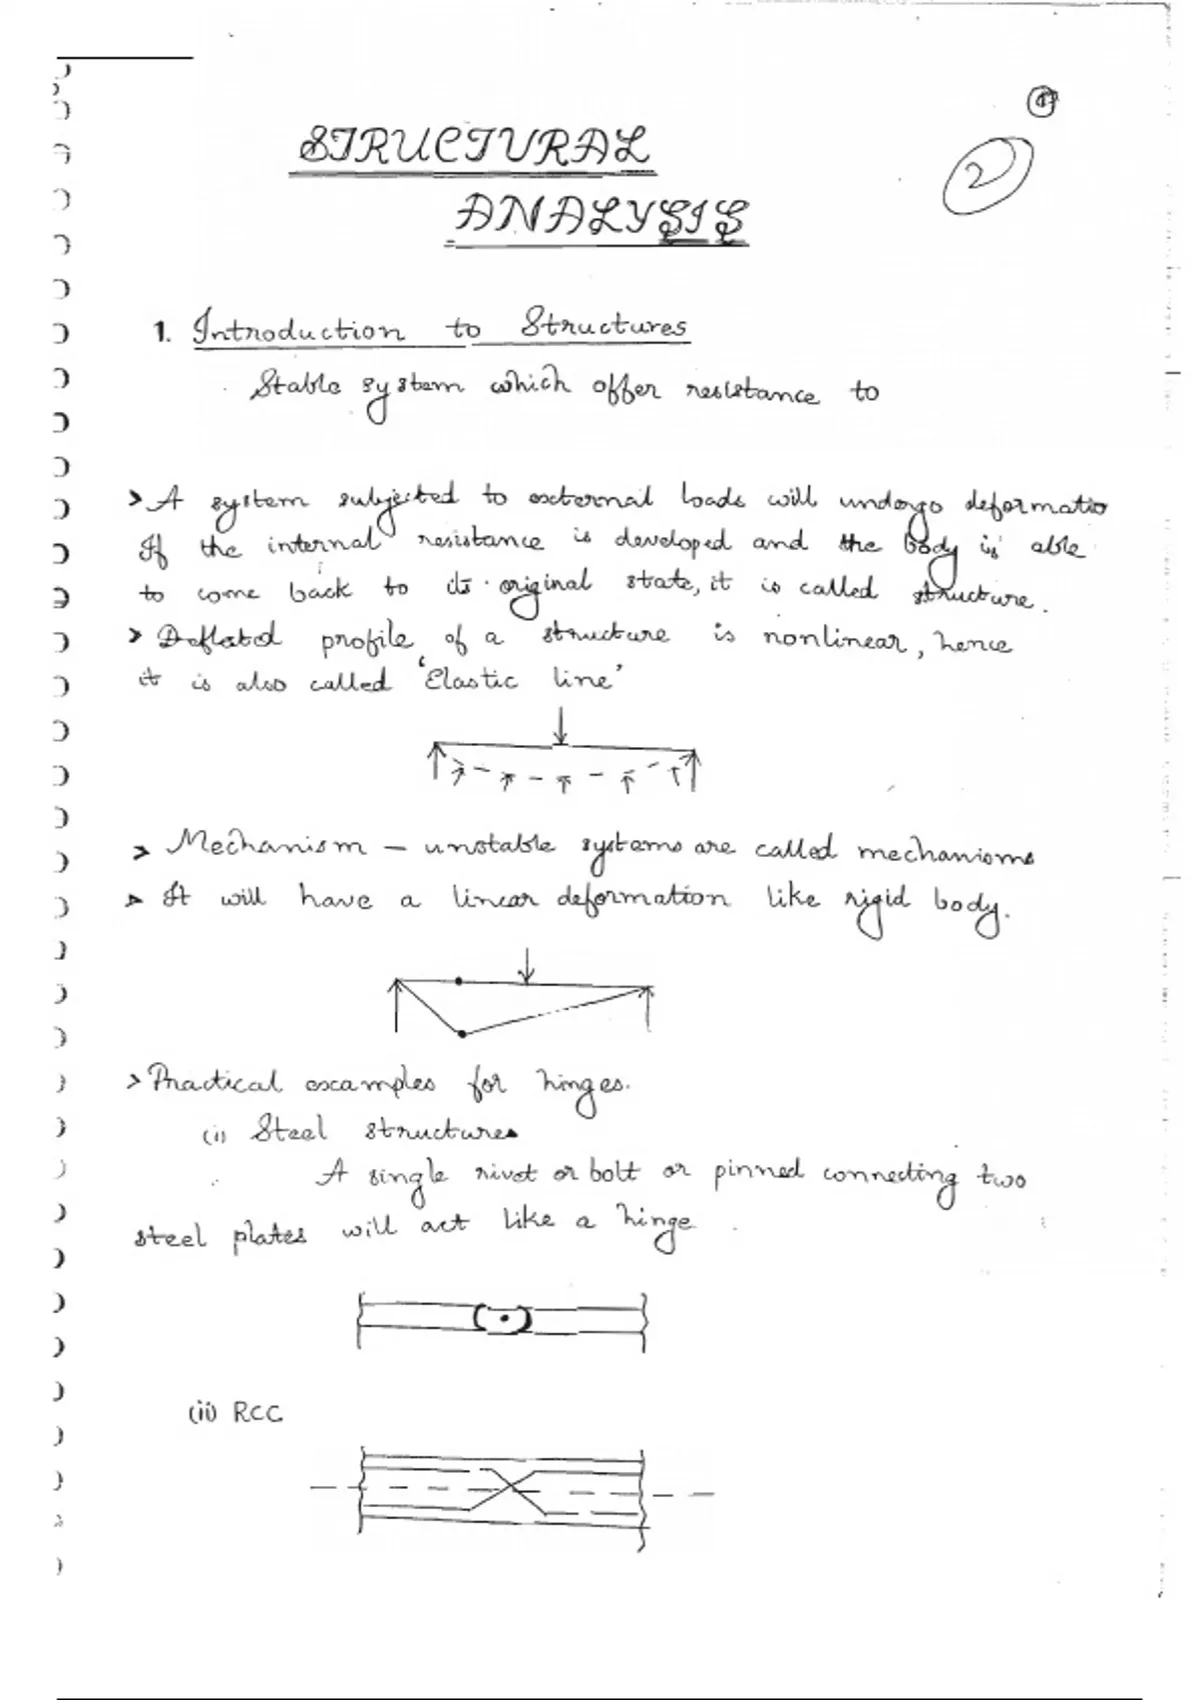 2
STRUCTURAL
ANALYSIS
1. Introduction to Structures
Stable system which offer resistance to
> A system subjected to external loads will undergo deformatio
If the internal resistance is developed and the body is able
to come back to its original state, it is called structure.
> Deflated profile of a structure is nonlinear, hence
it is also called 'Elastic line'
> Mechanism – unstable systems are called mechanisms
> It will have a linear deformation like rigid body.
> Practical examples for hinges.
(i) Steel structures
A single rivet or bolt or pinned connecting two
steel plates will act like a hinge.
(ii) RCC